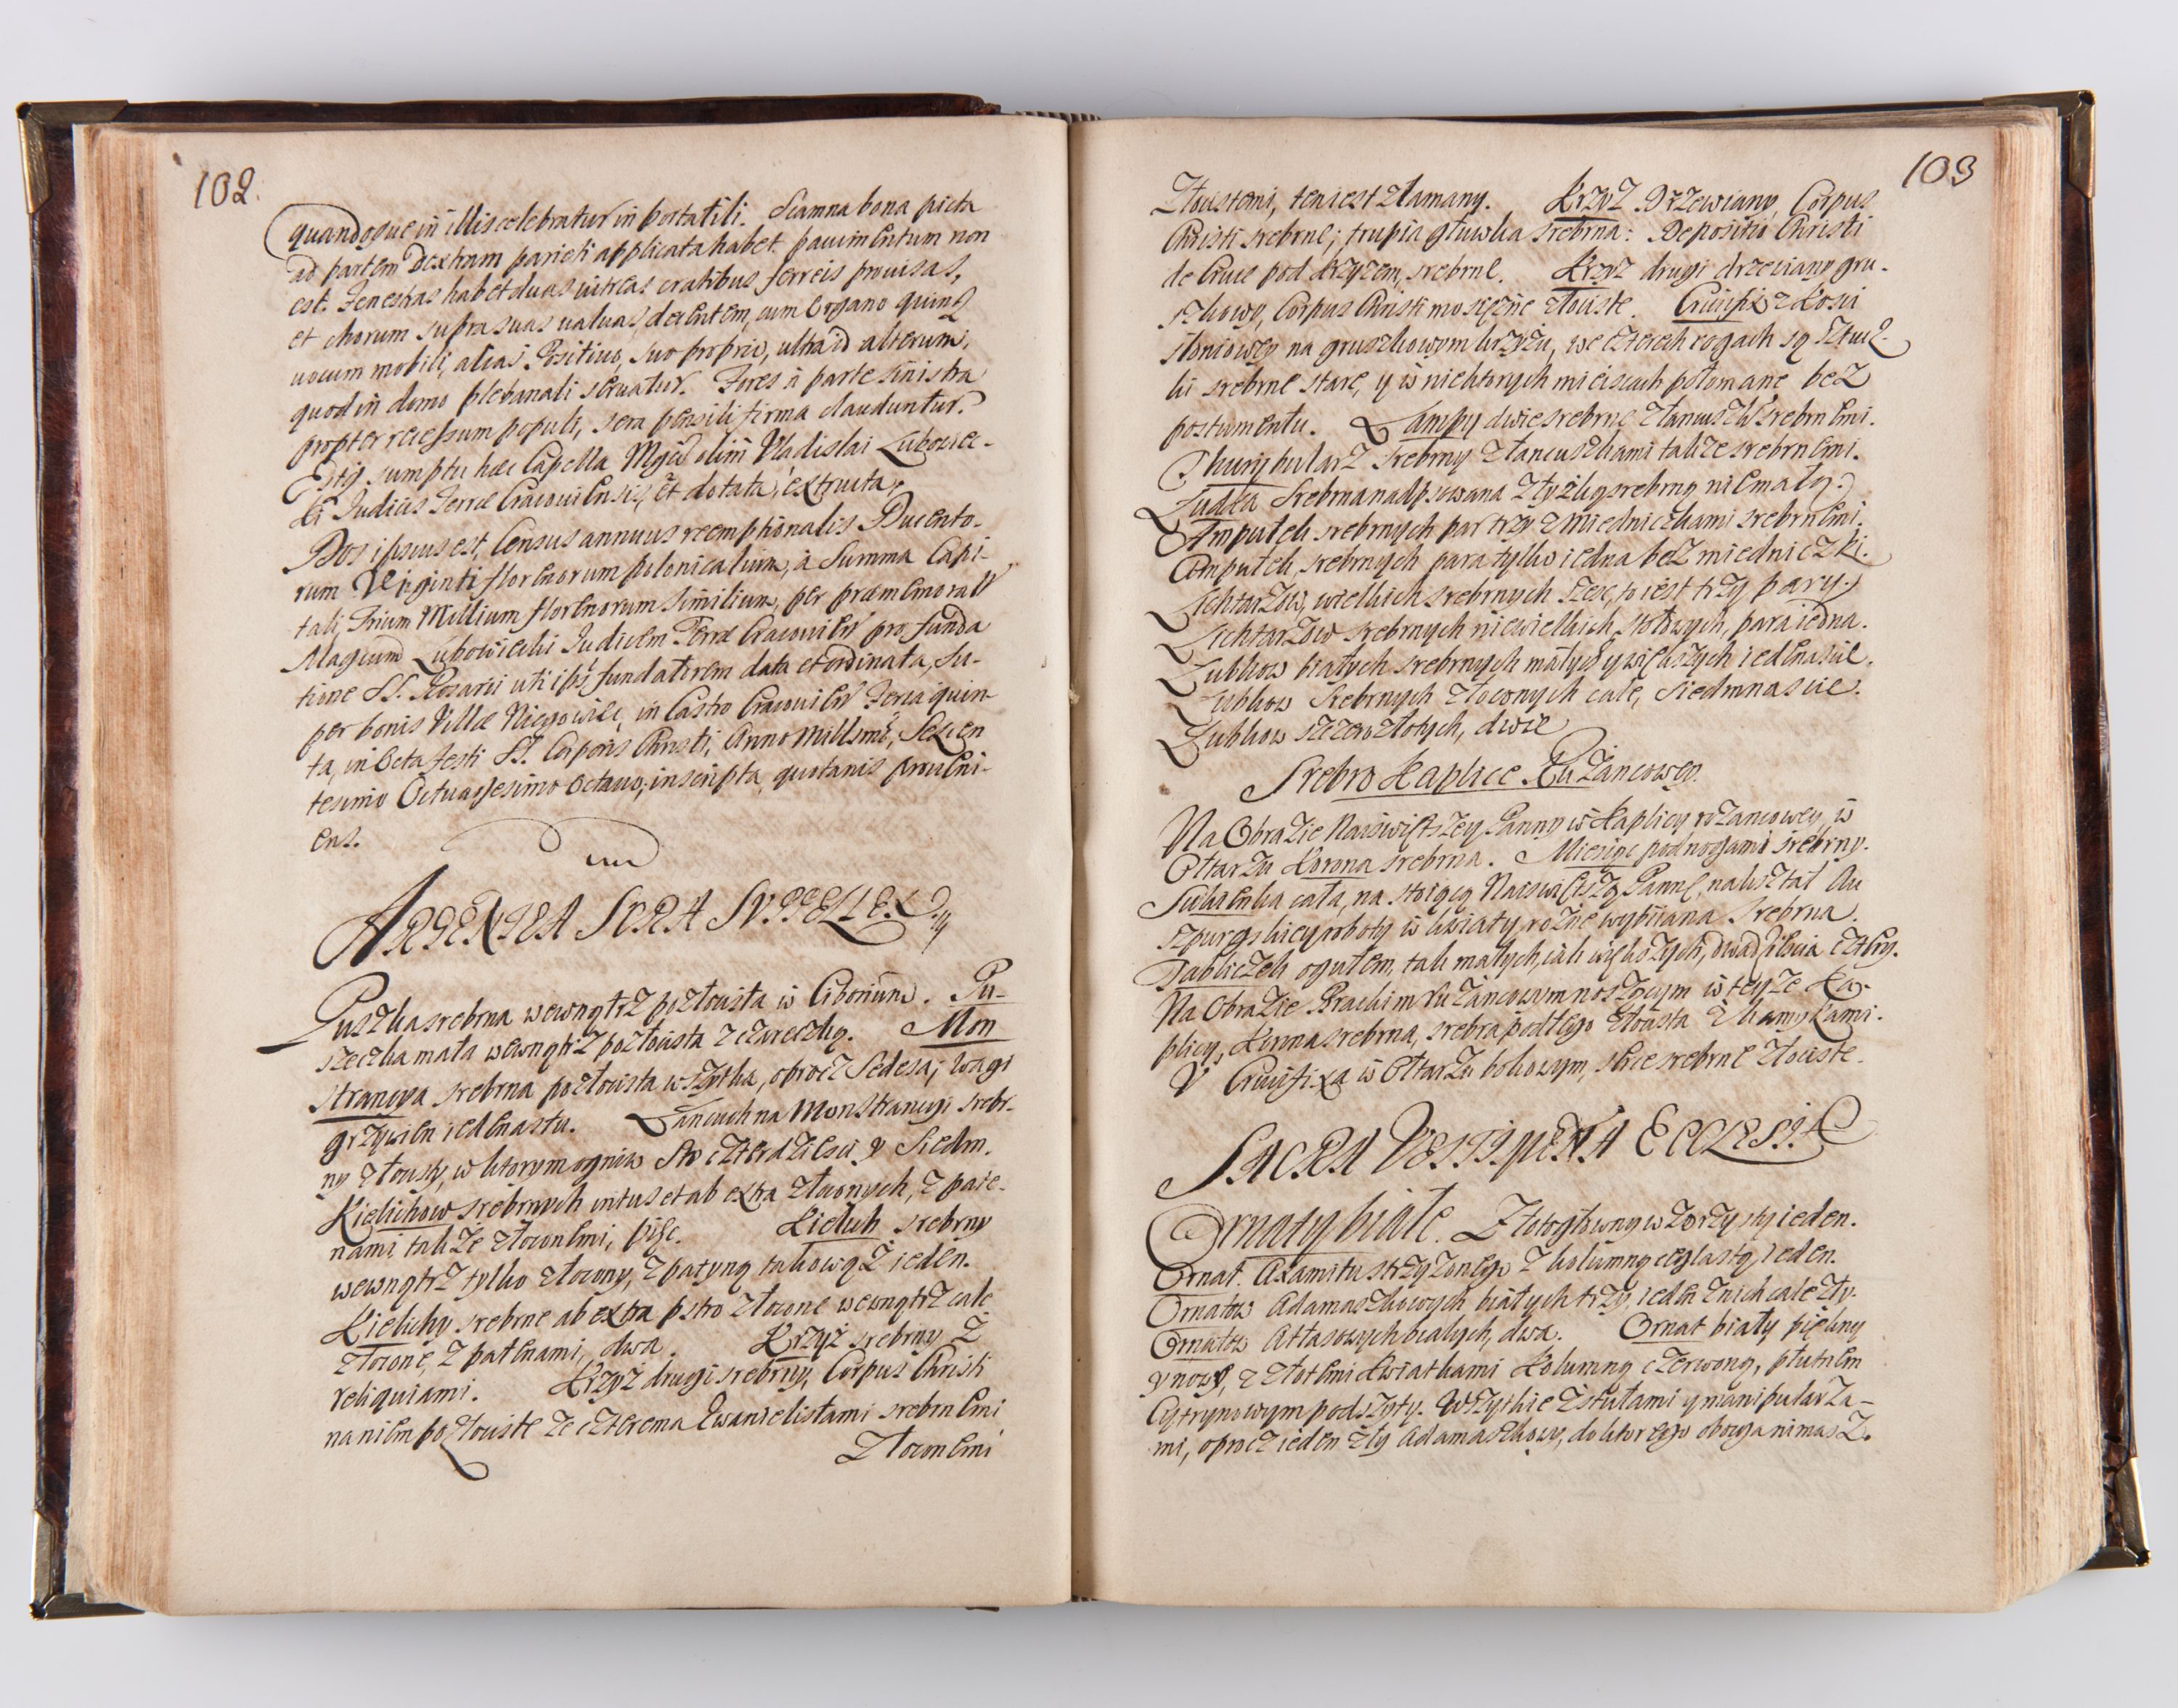 102.
quandoque in illis celebratur in portatili. Scamna bona picta
ad partem Dextram parieti applicata habet. pauimentum non
est. Fenestras habet duas vitreas cratibus ferreis prouisas,
et chorum supra suas ualuas, decentem, cum Organo quinq
uocum mobili, alias Positiuo, suo proprio, ultra id alterum,
quod in domo plebanali seruatur. Fores à parte sinistra
propter recessum populi, sera pensili firma clauduntur.
Estq sumptu haec Capella Mgci olim Vladislai Lubowiec-
ki Judicis Terrae Cracouiensis, et dotata, extructa,
Dos ipsius est, Census annuus reemptionalis Ducento-
rum Viginti florenorum polonicalium, à Summa Capi-
tali, Trium Millium florenorum similium, per praememorat
Magcum Lubowiecki Judicem Terrae Cracouien pro funda
tione SS. Rosarii uti ipsi fundatorem data et ordinata, su-
per bonis Villae Niegowic, in Castro Cracouien Feria quin
ta, in Octa festi SS. Corporis Christi, Anno Millsmo, Sexcen
tesimo Octuagesimo Octauo, inscripta, quotanis proueni-
ens.
ARGENTEA SCRA SVPPELLEX
Puszka srebrna wewnątrz pozłocista w Ciborium. Pu-
szeczka mała wewnątrz pozłocista z czareczką. Mon
strancya srebrna pozłocista wszytka, oprocz Sedesa; wagi
grzywien iedenastu. Łancuch na Monstrancyi srebr-
ny złocisty, w ktorym ogniw Sto czterdziesci y Siedm.
Kielichow srebrnych intus et ab extra złoconych, z pate-
nami także złoconemi, pięc. Kieluh srebrny
wewnątrz tylko złocony, z patyną takowąż ieden.
Kielichy srebrne ab extra pstro złocone wewnątrz cale
złocone, z patenami, dwa. Krzyż srebrny z
reliquiami. Krzyż drugi srebrny, Corpus Christi
na niem pozłociste ze czterema Ewanielistami srebrnemi
Złoconemi
103
Złoustemi, ten iest złamany. Krzyż Drzewiany, Corpus
Christi srebrne; trupia głuwka srebrna: Depositio Christi
de Cruce pod krzyzem, srebrne. Krzyż drugi drzewiany gru-
szkowy, Corpus Christi mosiężne złociste. Crucifix z kosci
słoniowey na gruszkowym krzyżu, we czterech rogach są sztucz-
ki srebrne stare, y w niektorych mieiscach połomane bez
postumentu. Lampy dwie srebrne z łancuszk srebrnemi.
Thurybularz srebrny z łancuszkami także srebrnemi.
Łudka Srebrna nadpsowana z łyżką srebrną niemałą.
Ampułek srebrnych par trzy z miedniczkami srebrnemi.
Ampułek srebrnych para tylko iedna bez miedniczki.
Lichtarzow wielkich srebrnych szesc, to iest trzy pary.
Lichtarzow srebrnych niewielkich stołowych, para iedna.
Kubkow białych srebrnych małych y większych iedenascie.
Kubkow Srebrnych złoconych cale, siedmnascie.
Kubkow szczerozłotych, dwie
Srebro Kaplice Rużancowey.
Na Obrazie Naswiętszey Panny w Kaplicy rożancowey, w
Ołtarzu Korona srebrna. Miesiąc pod nogami srebrny.
Sukienka cała, na stoiącą Naswiętszą Pannę, na kształt Au
szpurgskiey roboty w kwiaty rożne wybiiana srebrna.
Tabliczek ogułem, tak małych, iak większych, dwadziescia cztery.
Na Obrazie Brackim rużancowym noszącym w teyże Ka-
plicy, Korona srebrna, srebra podłego złocista z kamykami.
V Crucifixa w Ołtarzu bokowym, serce srebrne złociste.
SACRA VESTIMENTA ECCLESIAE
Ornaty białe. Złotogłowny wzorzysty ieden.
Ornat Axamitu strzyżonego z kolumną ceglastą, ieden.
Ornatow Adamaszkowych białych trzy, ieden z nich cale zły.
Ornatow Attasowych białych, dwa. Ornat biały piękny
y nowy, z złotemi kwiatkami kolumną czerwoną, płutnem
Cytrynowym podszyty. Wszytkie z stułami y manipularza-
mi, oprocz ieden zły Adamaszkowy, do ktorego obuyga nimasz.